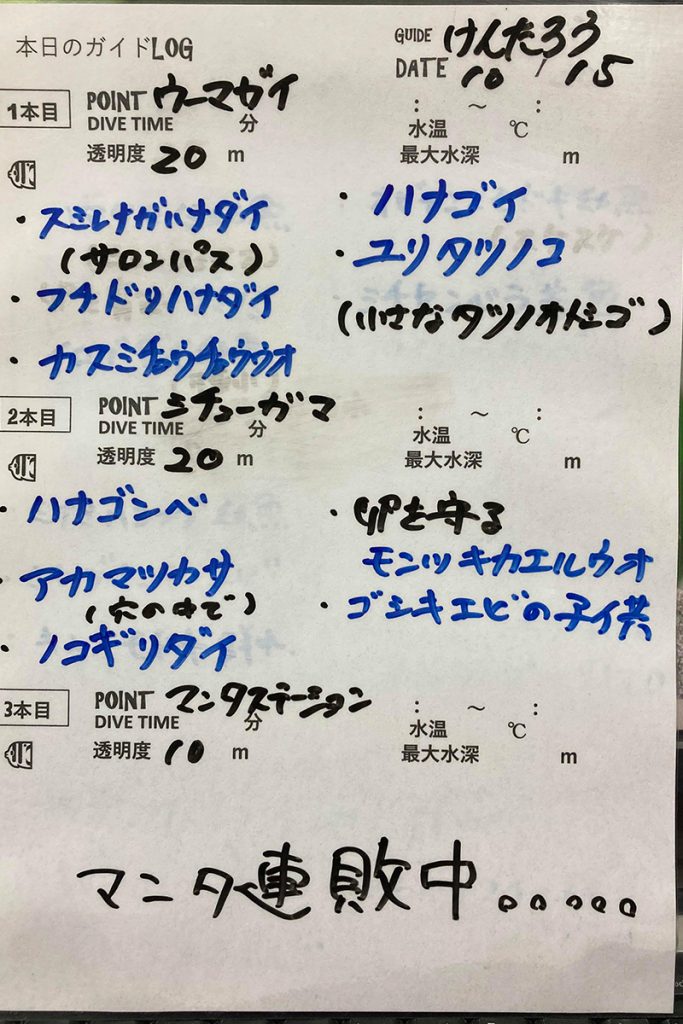 本日のガイドLOG
GUIDE けんたろう
DATE 10 / 15
1本目 POINT ウーマガイ
DIVE TIME 分 : ～ :
水温 ℃
透明度 20 m 最大水深 m
・スミレナガハナダイ
(サロンパス)
・フチドリハナダイ
・カスミチョウチョウウオ
・ハナゴイ
・ユリタツノコ
(小さなタツノオトシゴ)
2本目 POINT ミチューガマ
DIVE TIME 分 : ～ :
水温 ℃
透明度 20 m 最大水深 m
・ハナゴンベ
・アカマツカサ
(穴の中で)
・ノコギリダイ
・卵を守る
モンツキカエルウオ
・ゴシキエビの子供
3本目 POINT マンタステーション
DIVE TIME 分 : ～ :
水温 ℃
透明度 10 m 最大水深 m
マンタ連敗中。。。。。